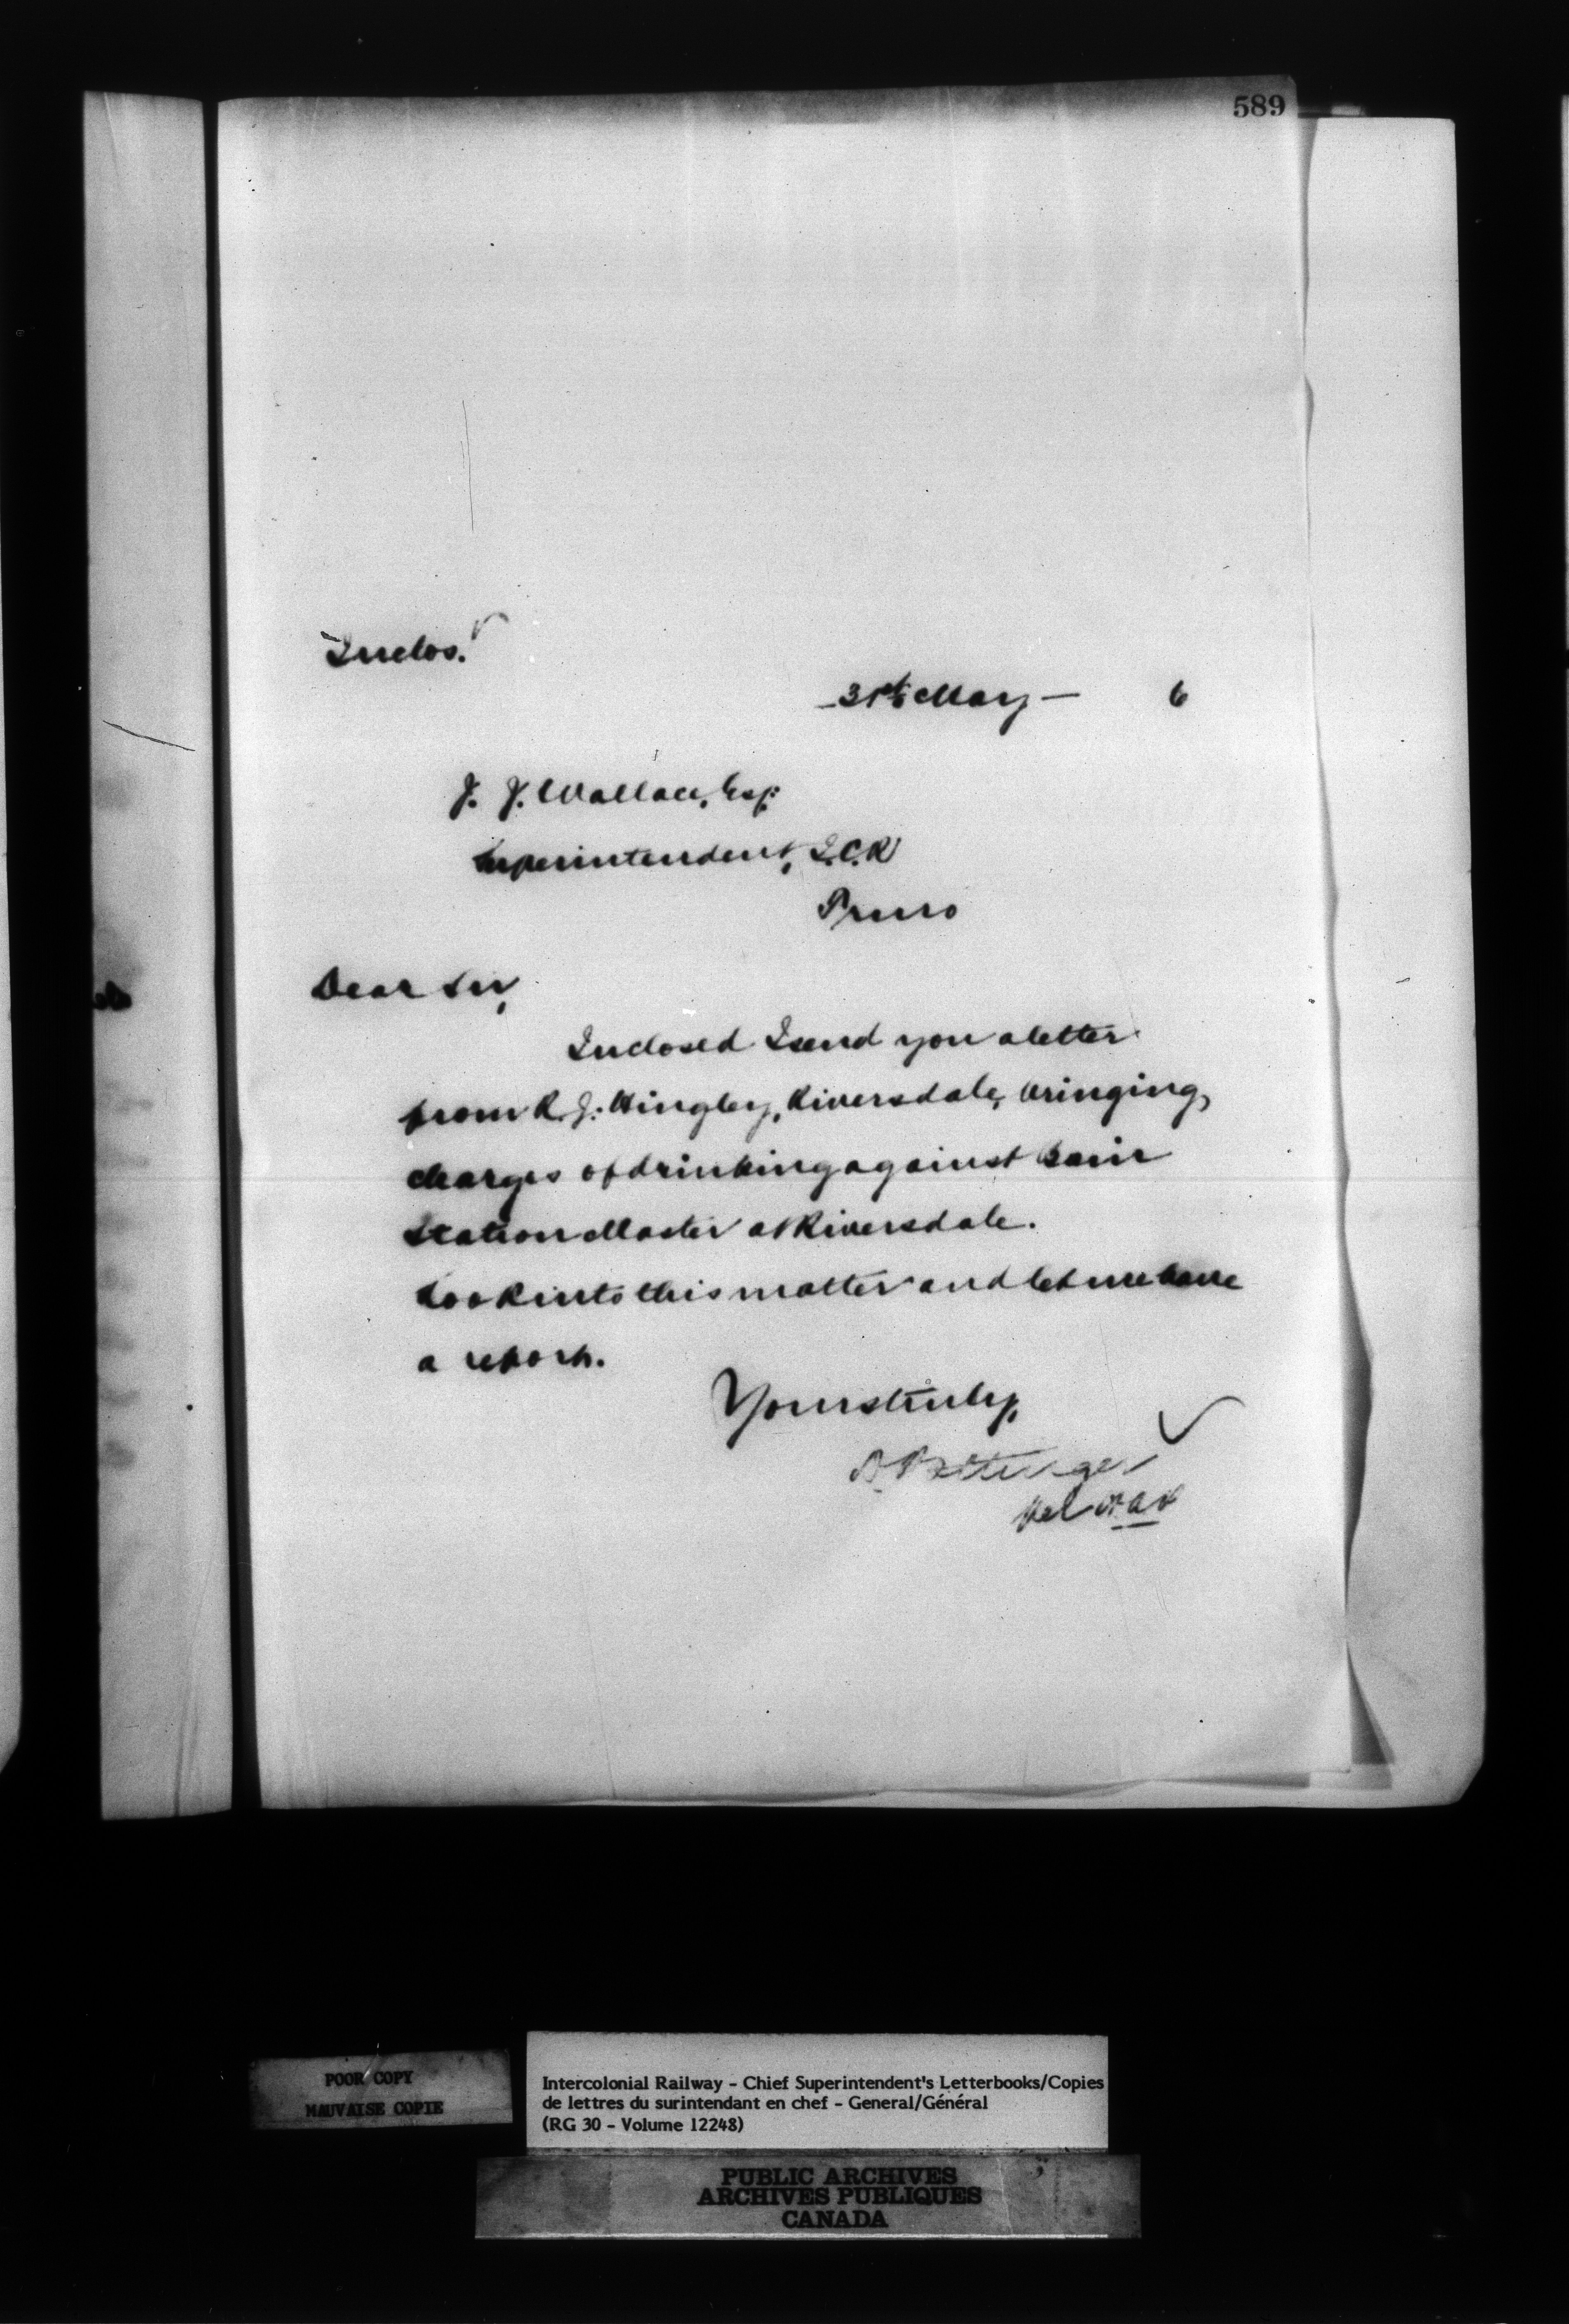 589
Inclos.
31st May — 6
J. J. Wallace, Esq:
Superintendent, I.C.R
Truro
Dear Sir,
Inclosed I send you a letter
from R. J. Hingley, Riversdale, bringing,
charges of drinking against
Station Master at Riversdale.
Look into this matter and let me have
a report.
Yours truly,
D Pottinger
POOR COPY
MAUVAISE COPIE
Intercolonial Railway - Chief Superintendent's Letterbooks/Copies
de lettres du surintendant en chef - General/Général
(RG 30 - Volume 12248)
PUBLIC ARCHIVES
ARCHIVES PUBLIQUES
CANADA